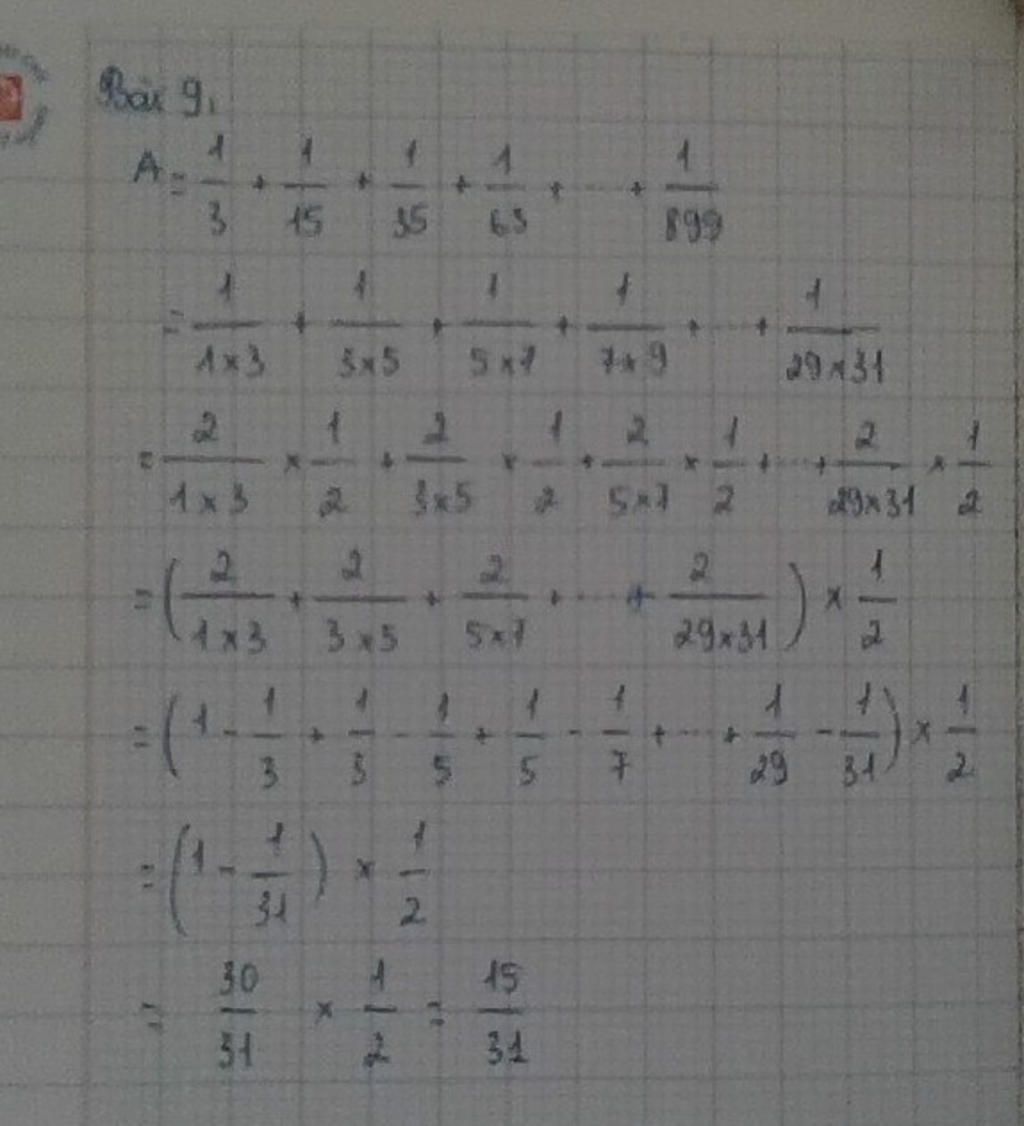 Bài 9,
A = 1/3 + 1/15 + 1/35 + 1/63 + ... + 1/899
= 1/(1×3) + 1/(3×5) + 1/(5×7) + 1/(7×9) + ... + 1/(29×31)
= 2/(1×3) × 1/2 + 2/(3×5) × 1/2 + 2/(5×7) × 1/2 + ... + 2/(29×31) × 1/2
= (2/(1×3) + 2/(3×5) + 2/(5×7) + ... + 2/(29×31)) × 1/2
= (1 - 1/3 + 1/3 - 1/5 + 1/5 - 1/7 + ... + 1/29 - 1/31) × 1/2
= (1 - 1/31) × 1/2
= 30/31 × 1/2 = 15/31